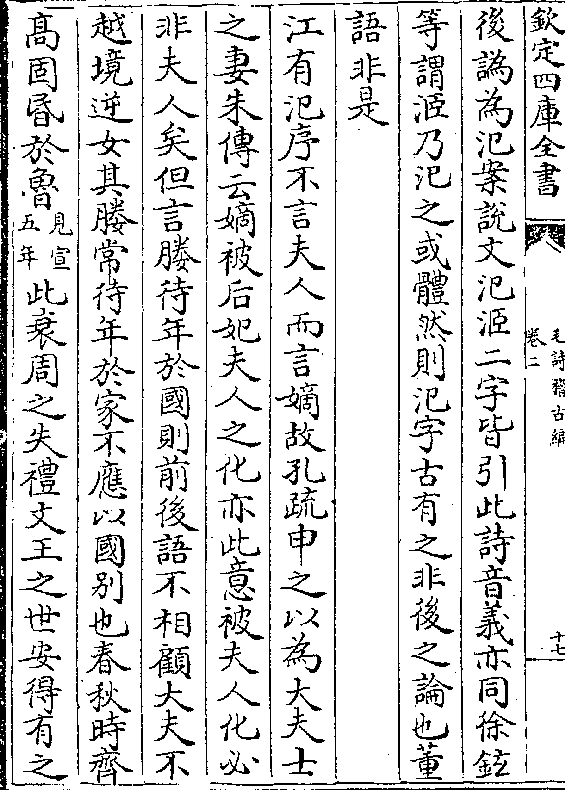 欽定四庫全書
毛詩稽古編
卷二
十七
後譌為汜案說文汜洍二字皆引此詩音義亦同徐鉉
等謂洍乃汜之或體然則汜字古有之非後之論也董
語非是
江有汜序不言夫人而言嫡故孔疏申之以為大夫士
之妻朱傳云嫡被后妃夫人之化亦此意被夫人化必
非夫人矣但言媵待年於國則前後語不相顧大夫不
越境逆女其媵常待年於家不應以國别也春秋時齊
髙固昏於魯見宣五年此衰周之失禮文王之世安得有之